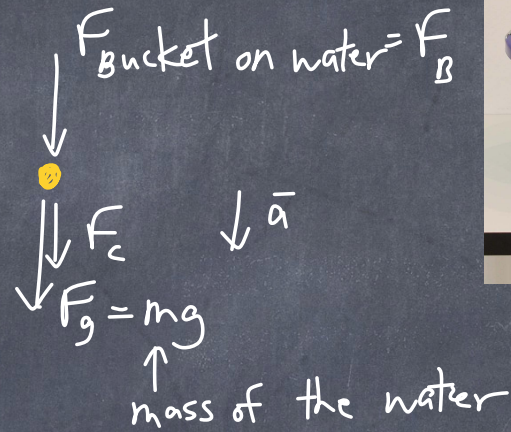 F_Bucket on water = F_B
F_c
a̅
F_g = mg
mass of the water